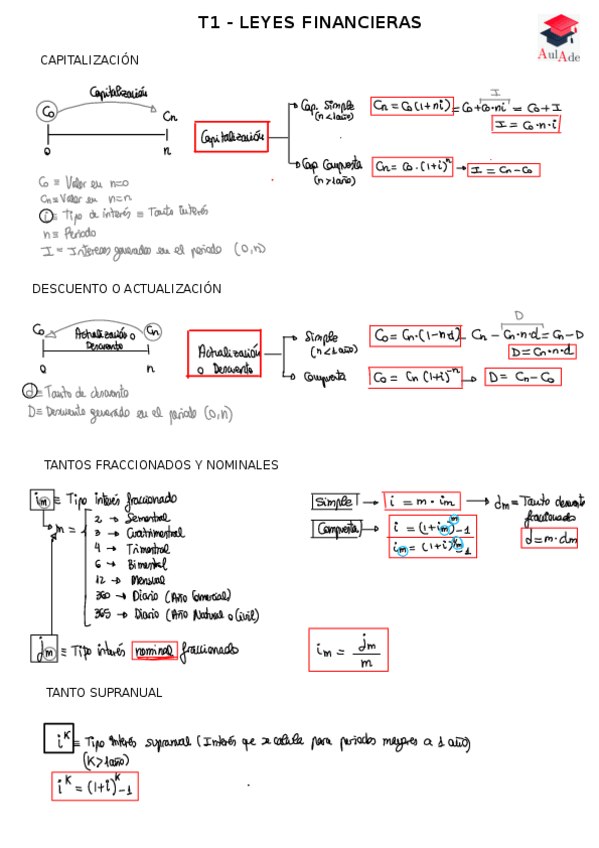 T1 - LEYES FINANCIERAS
AulAde
CAPITALIZACIÓN
Capitalización
C₀ Cn
0 n
Capitalización
Cap. Simple
(n<1año)
Cn = C₀(1+ni) = C₀+C₀·ni = C₀+I
I
I = C₀·n·i
Cap Compuesta
(n>1año)
Cn = C₀·(1+i)ⁿ → I = Cn-C₀
C₀ ≡ Valor en n=0
Cn ≡ Valor en n=n
i ≡ Tipo de interés ≡ Tanto interés
n ≡ Periodo
I = Intereses generados en el periodo (0,n)
DESCUENTO O ACTUALIZACIÓN
C₀ Actualización o Descuento Cn
0 n
Actualización
o Descuento
Simple
(n<1año)
C₀ = Cn·(1-n·d) = Cn - Cn·n·d = Cn-D
D
D = Cn·n·d
Compuesta
C₀ = Cn (1+i)⁻ⁿ → D = Cn-C₀
d ≡ Tanto de descuento
D ≡ Descuento generado en el periodo (0,n)
TANTOS FRACCIONADOS Y NOMINALES
im ≡ Tipo interés fraccionado
m =
2 → Semestral
3 → Cuatrimestral
4 → Trimestral
6 → Bimestral
12 → Mensual
360 → Diario (Año Comercial)
365 → Diario (Año Natural o Civil)
Simple → i = m·im → dm = Tanto descuento
fraccionado
d = m·dm
Compuesta → i = (1+im)ᵐ-1
im = (1+i)^1/m-1
jm ≡ Tipo interés nominal fraccionado
im = jm/m
TANTO SUPRANUAL
iᴷ ≡ Tipo interés supranual (Interés que se calcula para periodos mayores a 1 año)
(K>1año)
iᴷ = (1+i)ᴷ-1